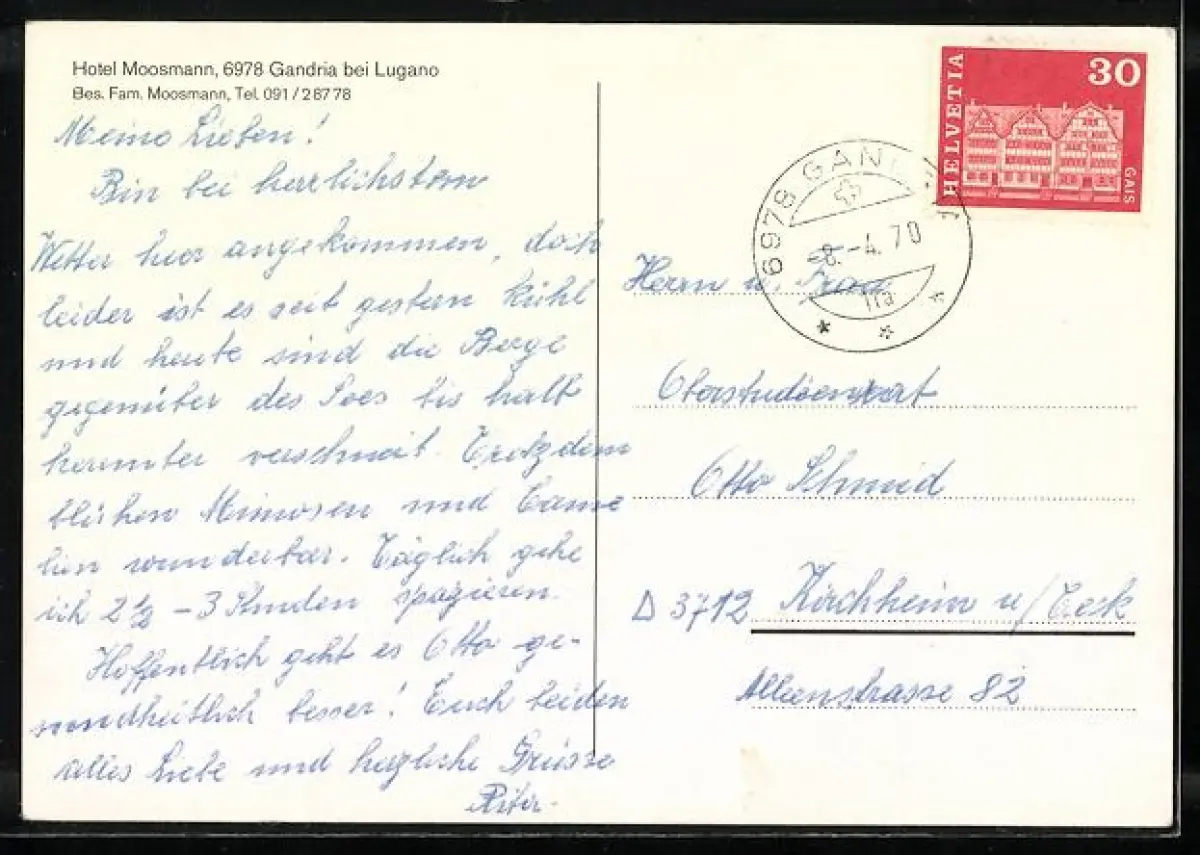 Hotel Moosmann, 6978 Gandria bei Lugano
Bes. Fam. Moosmann, Tel. 091/28778
Meine Lieben!
Bin bei herrlichstem
Wetter hier angekommen, doch
leider ist es seit gestern kühl
und heute sind die Berge
gegenüber des Sees bis halb
herunter verschneit. Trotzdem
blühen Mimosen und Came
lien wunderbar. Täglich gehe
ich 2 1/2 - 3 Stunden spazieren.
Hoffentlich geht es Otto ge-
sundheitlich besser! Euch beiden
alles Liebe und herzliche Grüsse
HELVETIA
30
GAIS
6978 GAN
-8.-4.70
Herrn u. Frau
Oberstudienrat
Otto Schmid
D 3712 Kirchheim u/Teck
Alleenstrasse 82